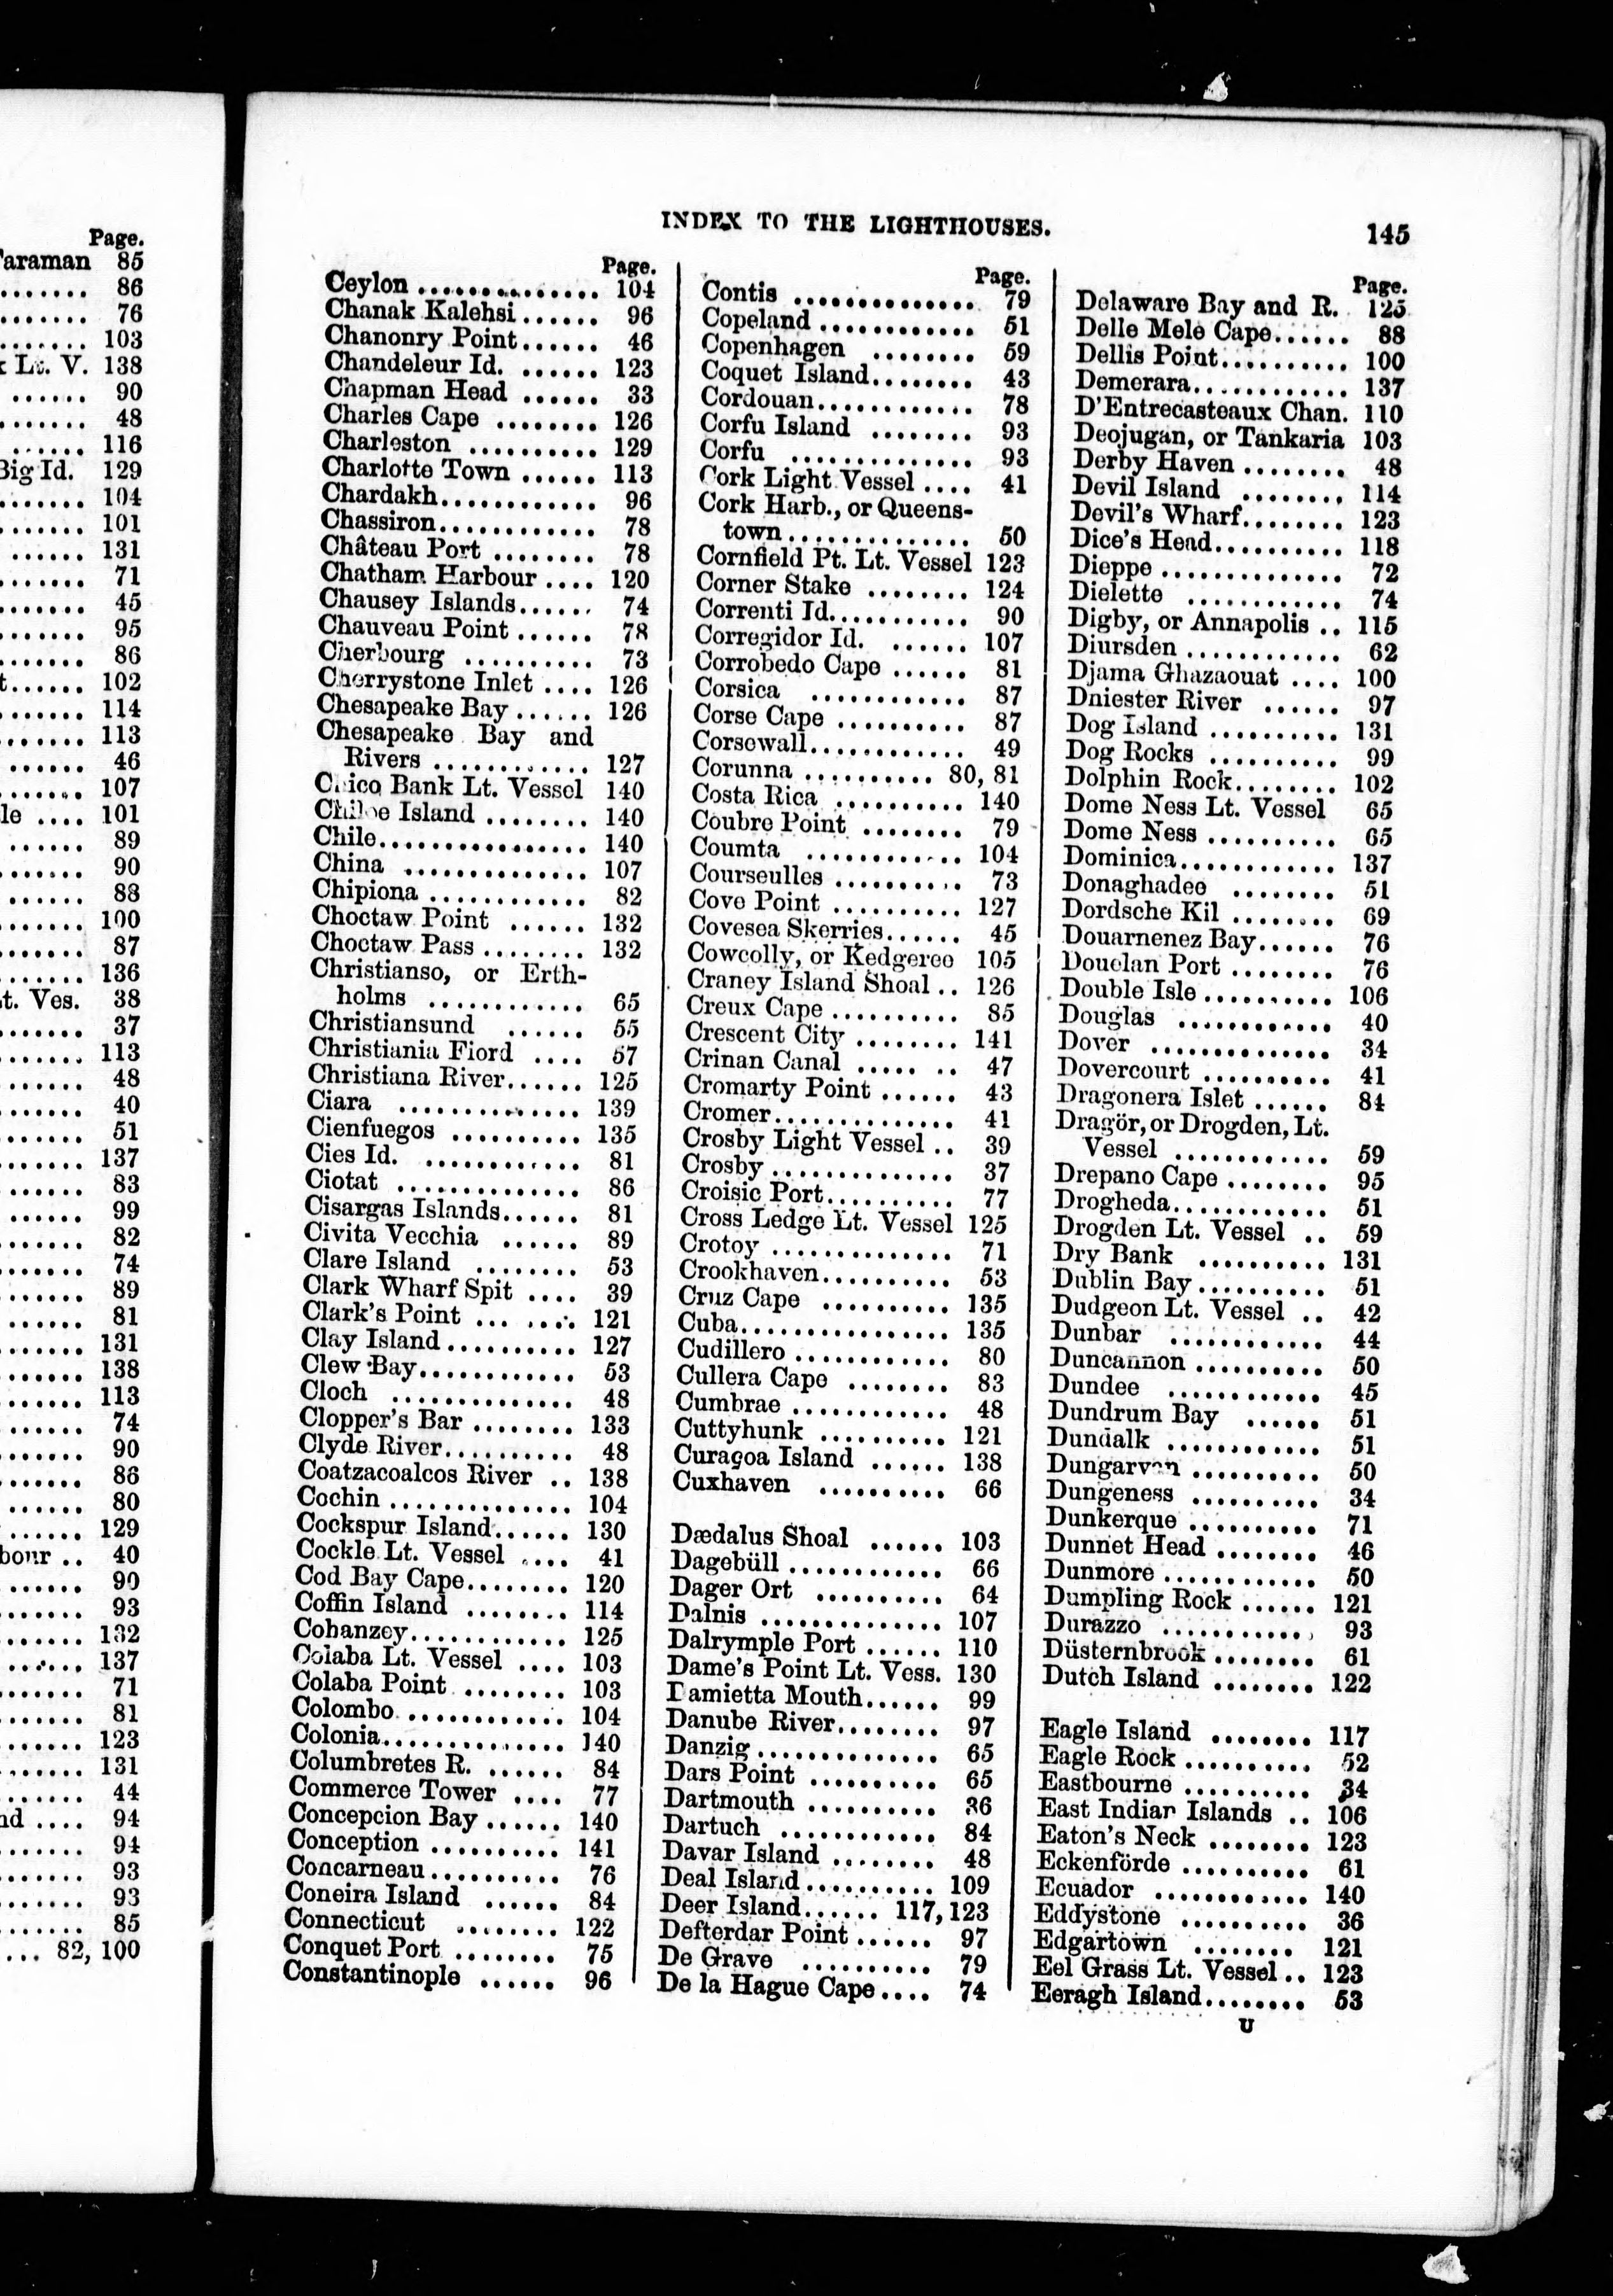 Page.
araman 85
....... 86
....... 76
....... 103
Lt. V. 138
...... 90
....... 48
...... 116
Big Id. 129
....... 104
....... 101
...... 131
....... 71
....... 45
....... 95
....... 86
t...... 102
....... 114
....... 113
...... 46
....... 107
le .... 101
...... 89
....... 90
...... 88
....... 100
....... 87
....... 136
t. Ves. 38
....... 37
....... 113
....... 48
...... 40
....... 51
...... 137
....... 83
...... 99
...... 82
....... 74
...... 89
...... 81
....... 131
....... 138
...... 113
....... 74
....... 90
....... 86
...... 80
...... 129
bour .. 40
...... 90
....... 93
....... 132
....... 137
....... 71
....... 81
....... 123
....... 131
....... 44
nd .... 94
....... 94
....... 93
....... 93
....... 85
... 82, 100
INDEX TO THE LIGHTHOUSES. 145
Page.
Ceylon .............. 104
Chanak Kalehsi...... 96
Chanonry Point...... 46
Chandeleur Id. ...... 123
Chapman Head ...... 33
Charles Cape ........ 126
Charleston .......... 129
Charlotte Town ...... 113
Chardakh............ 96
Chassiron............ 78
Château Port ........ 78
Chatham Harbour .... 120
Chausey Islands...... 74
Chauveau Point ...... 78
Cherbourg .......... 73
Cherrystone Inlet .... 126
Chesapeake Bay ...... 126
Chesapeake Bay and
Rivers ............ 127
Chico Bank Lt. Vessel 140
Chiloe Island ........ 140
Chile................ 140
China .............. 107
Chipiona ............ 82
Choctaw Point ...... 132
Choctaw Pass ........ 132
Christianso, or Erth-
holms ............ 65
Christiansund ...... 55
Christiania Fiord .... 57
Christiana River...... 125
Ciara .............. 139
Cienfuegos .......... 135
Cies Id. ............ 81
Ciotat .............. 86
Cisargas Islands...... 81
Civita Vecchia ...... 89
Clare Island ........ 53
Clark Wharf Spit .... 39
Clark's Point ... .... 121
Clay Island.......... 127
Clew Bay............ 53
Cloch .............. 48
Clopper's Bar ........ 133
Clyde River.......... 48
Coatzacoalcos River .. 138
Cochin .............. 104
Cockspur Island...... 130
Cockle Lt. Vessel .... 41
Cod Bay Cape........ 120
Coffin Island ........ 114
Cohanzey............ 125
Colaba Lt. Vessel .... 103
Colaba Point ........ 103
Colombo ............ 104
Colonia.............. 140
Columbretes R. ...... 84
Commerce Tower .... 77
Concepcion Bay ...... 140
Conception .......... 141
Concarneau .......... 76
Coneira Island ...... 84
Connecticut ........ 122
Conquet Port ........ 75
Constantinople ...... 96
Page.
Contis .............. 79
Copeland ............ 51
Copenhagen ........ 59
Coquet Island........ 43
Cordouan............ 78
Corfu Island ........ 93
Corfu .............. 93
Cork Light Vessel .... 41
Cork Harb., or Queens-
town.............. 50
Cornfield Pt. Lt. Vessel 123
Corner Stake ........ 124
Correnti Id........... 90
Corregidor Id. ...... 107
Corrobedo Cape ...... 81
Corsica ............ 87
Corse Cape .......... 87
Corsewall............ 49
Corunna .......... 80, 81
Costa Rica .......... 140
Coubre Point ........ 79
Coumta ............ 104
Courseulles .......... 73
Cove Point .......... 127
Covesea Skerries...... 45
Cowcolly, or Kedgeree 105
Craney Island Shoal .. 126
Creux Cape .......... 85
Crescent City ........ 141
Crinan Canal ..... .. 47
Cromarty Point ...... 43
Cromer.............. 41
Crosby Light Vessel .. 39
Crosby .............. 37
Croisic Port.......... 77
Cross Ledge Lt. Vessel 125
Crotoy .............. 71
Crookhaven.......... 53
Cruz Cape .......... 135
Cuba................ 135
Cudillero ............ 80
Cullera Cape ........ 83
Cumbrae ............ 48
Cuttyhunk .......... 121
Curaçoa Island ...... 138
Cuxhaven .......... 66
Dædalus Shoal ...... 103
Dagebüll ............ 66
Dager Ort .......... 64
Dalnis .............. 107
Dalrymple Port ...... 110
Dame's Point Lt. Vess. 130
Damietta Mouth...... 99
Danube River........ 97
Danzig .............. 65
Dars Point .......... 65
Dartmouth .......... 36
Dartuch ............ 84
Davar Island ........ 48
Deal Island.......... 109
Deer Island...... 117, 123
Defterdar Point ...... 97
De Grave .......... 79
De la Hague Cape .... 74
Page.
Delaware Bay and R. 125
Delle Mele Cape...... 88
Dellis Point.......... 100
Demerara............ 137
D'Entrecasteaux Chan. 110
Deojugan, or Tankaria 103
Derby Haven ........ 48
Devil Island ........ 114
Devil's Wharf........ 123
Dice's Head.......... 118
Dieppe .............. 72
Dielette ............ 74
Digby, or Annapolis .. 115
Diursden ............ 62
Djama Ghazaouat .... 100
Dniester River ...... 97
Dog Island .......... 131
Dog Rocks .......... 99
Dolphin Rock........ 102
Dome Ness Lt. Vessel 65
Dome Ness .......... 65
Dominica............ 137
Donaghadee ........ 51
Dordsche Kil ........ 69
Douarnenez Bay...... 76
Douelan Port ........ 76
Double Isle .......... 106
Douglas ............ 40
Dover .............. 34
Dovercourt .......... 41
Dragonera Islet ...... 84
Dragör, or Drogden, Lt.
Vessel ............ 59
Drepano Cape ........ 95
Drogheda............ 51
Drogden Lt. Vessel .. 59
Dry Bank .......... 131
Dublin Bay .......... 51
Dudgeon Lt. Vessel .. 42
Dunbar ............ 44
Duncannon .......... 50
Dundee ............ 45
Dundrum Bay ...... 51
Dundalk ............ 51
Dungarvan .......... 50
Dungeness .......... 34
Dunkerque .......... 71
Dunnet Head ........ 46
Dunmore ............ 50
Dumpling Rock ...... 121
Durazzo ............ 93
Düsternbrook ........ 61
Dutch Island ........ 122
Eagle Island ........ 117
Eagle Rock .......... 52
Eastbourne .......... 34
East Indian Islands .. 106
Eaton's Neck ........ 123
Eckenförde .......... 61
Ecuador ............ 140
Eddystone .......... 36
Edgartown ........ 121
Eel Grass Lt. Vessel .. 123
Eeragh Island........ 53
U